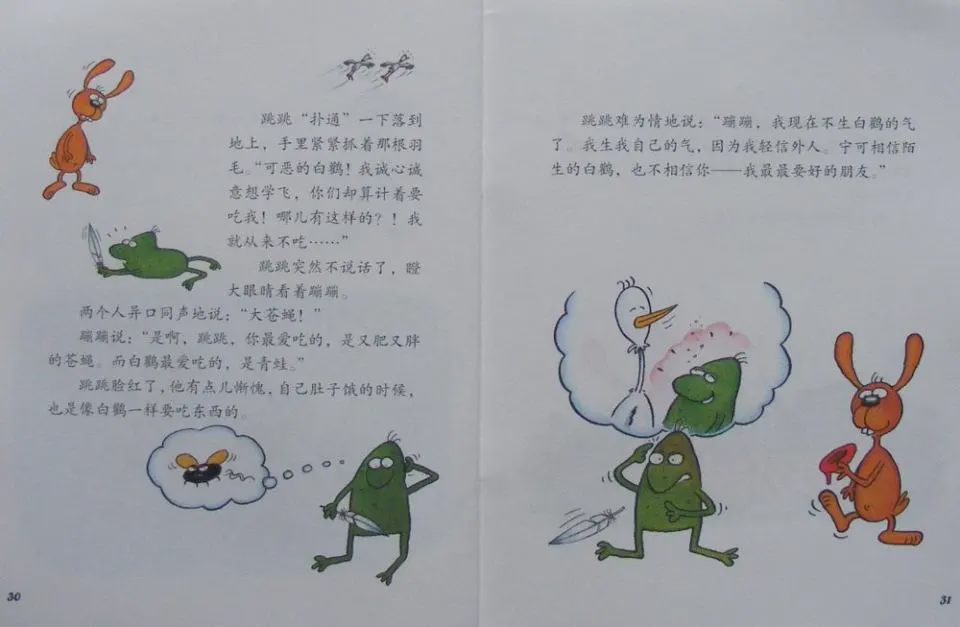 跳跳“扑通”一下落到
地上，手里紧紧抓着那根羽
毛。“可恶的白鹳！我诚心诚
意想学飞，你们却算计着要
吃我！哪儿有这样的？！我
就从来不吃……”
跳跳突然不说话了，瞪
大眼睛看着蹦蹦。
两个人异口同声地说：“大苍蝇！”
蹦蹦说：“是啊，跳跳，你最爱吃的，是又肥又胖
的苍蝇。而白鹳最爱吃的，是青蛙。”
跳跳脸红了，他有点儿惭愧，自己肚子饿的时候，
也是像白鹳一样要吃东西的。
30
跳跳难为情地说：“蹦蹦，我现在不生白鹳的气
了。我生我自己的气，因为我轻信外人。宁可相信陌
生的白鹳，也不相信你——我最最要好的朋友。”
31